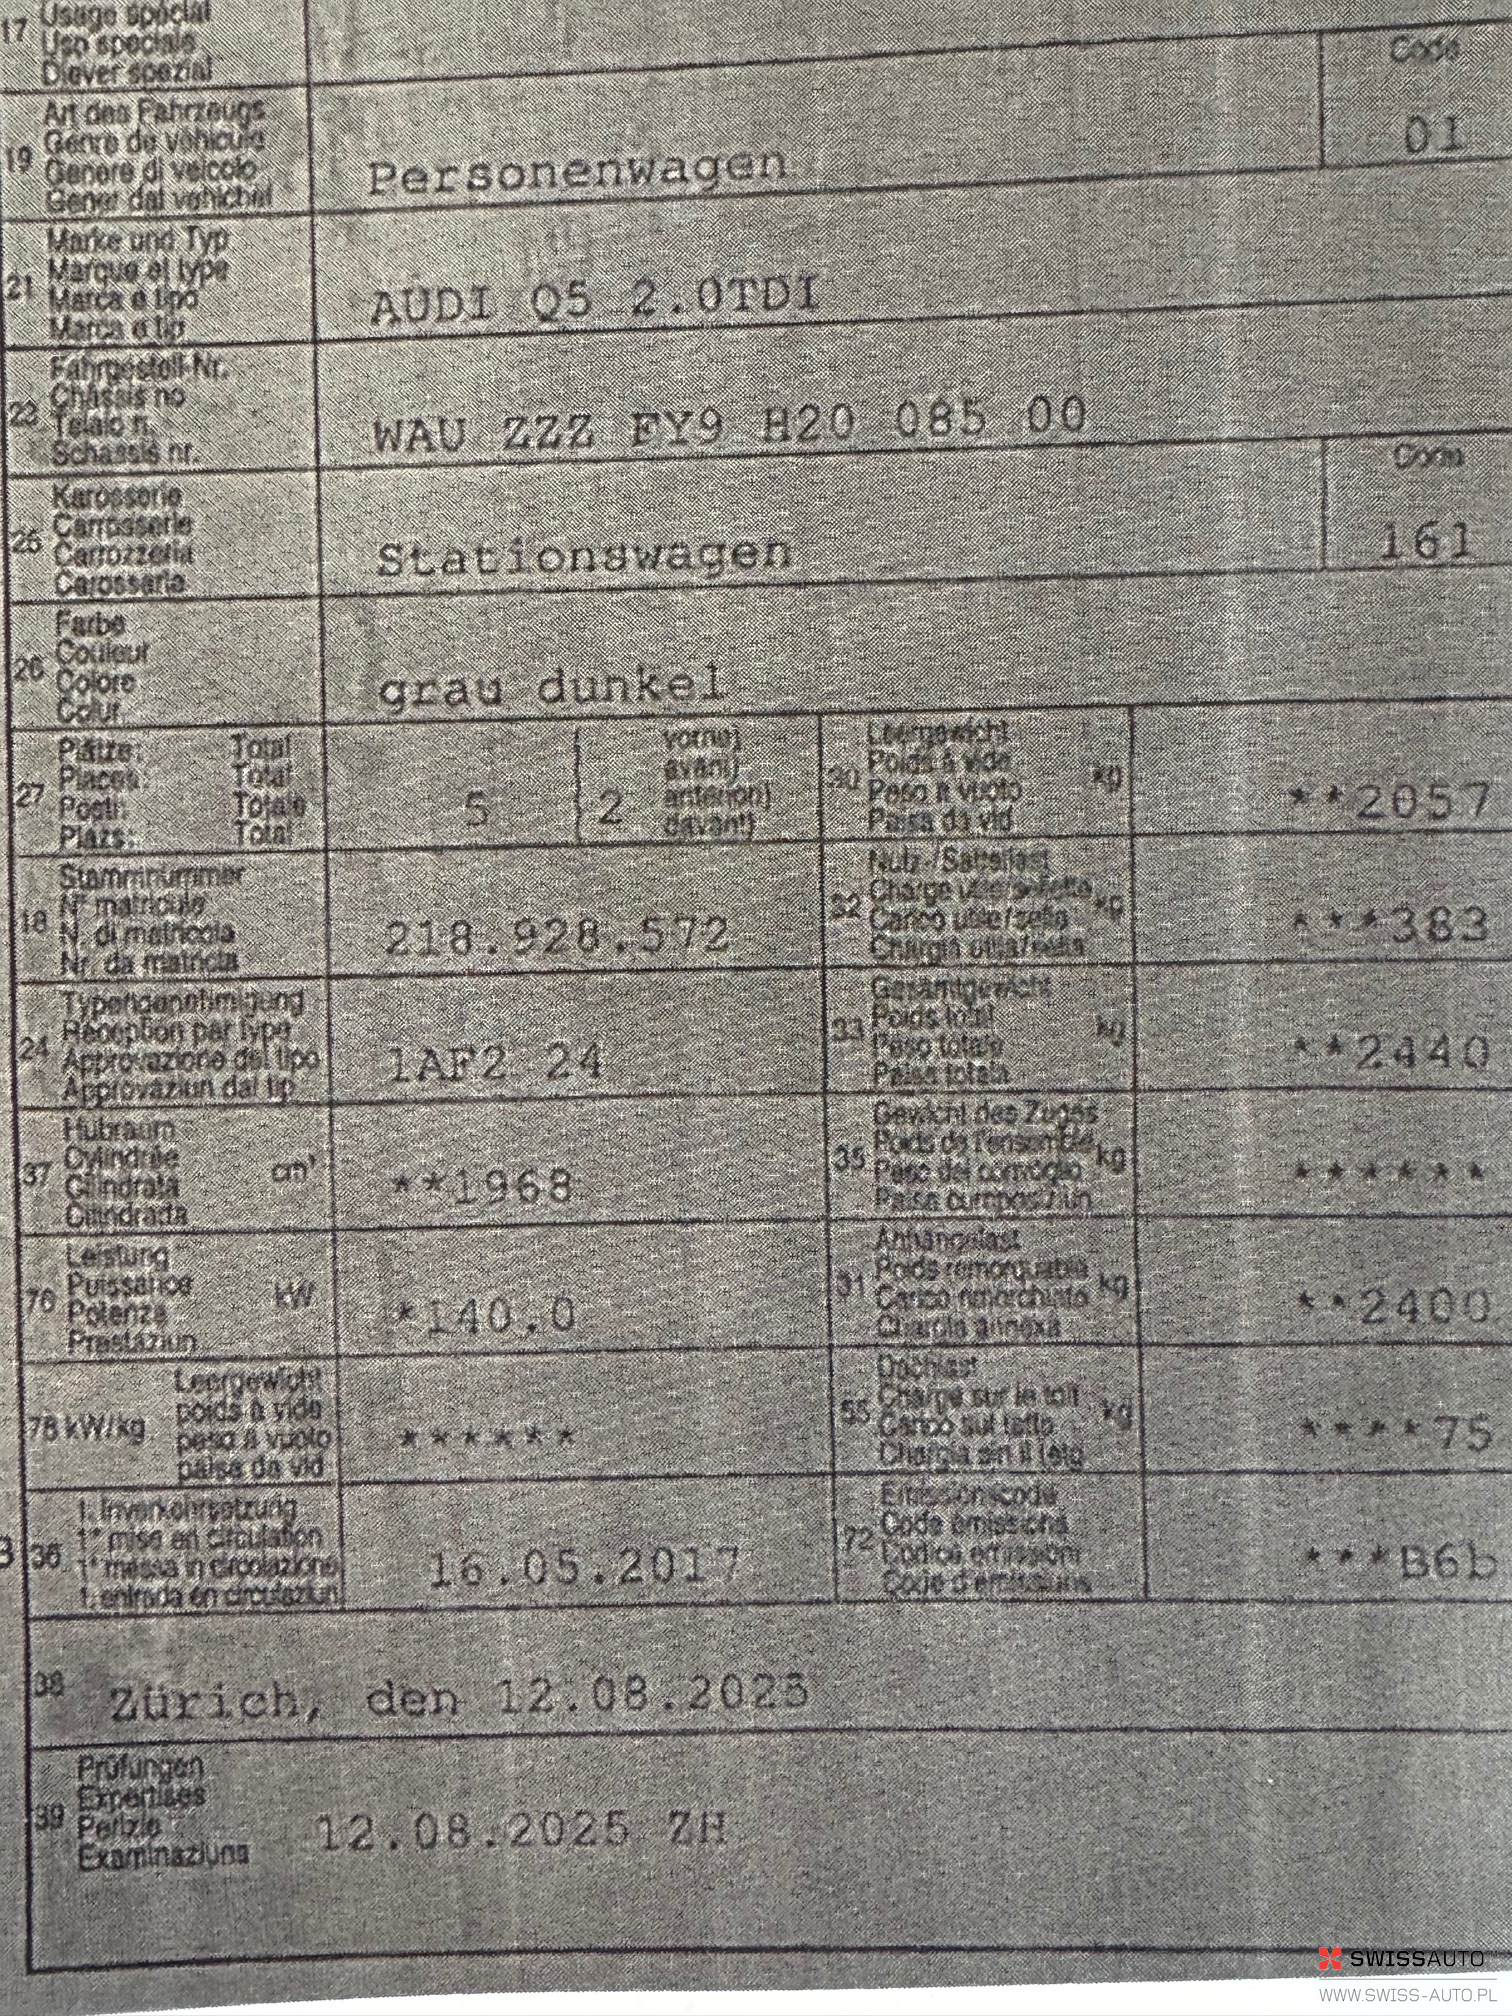 17 Usage spécial
Uso speciale
Diever spezial
Art des Fahrzeugs
19 Genre de véhicule
Genere di veicolo
Gener dal vehichel
Personenwagen
Code
01
Marke und Typ
21 Marque et type
Marca e tipo
Marca e tip
AUDI Q5 2.0TDI
Fahrgestell-Nr.
23 Châssis no
Telaio n.
Schassis nr.
WAU ZZZ FY9 H20 085 00
Karosserie
25 Carrosserie
Carrozzeria
Carossaria
Stationswagen
Code
161
Farbe
26 Couleur
Colore
Colur
grau dunkel
Plätze: Total
27 Places: Total
Posti: Totale
Plazs: Total
5 { 2
vorne)
avant)
anteriori)
davant)
Leergewicht
30 Poids à vide kg
Peso a vuoto
Paisa da vid
**2057
Stammnummer
18 N° matricule
N. di matricola
Nr. da matricla
218.928.572
Nutz-/Sattellast
32 Charge utile/sellette kg
Carico utile/sella
Chargia utila/sella
***383
Typengenehmigung
24 Réception par type
Approvazione del tipo
Approvaziun dal tip
1AF2 24
Gesamtgewicht
33 Poids total kg
Peso totale
Paisa totala
**2440
Hubraum
37 Cylindrée cm³
Cilindrata
Cilindrada
**1968
Gewicht des Zuges
35 Poids de l'ensemble kg
Peso del convoglio
Paisa cumposiziun
******
Leistung
76 Puissance kW
Potenza
Prestaziun
*140.0
Anhängelast
31 Poids remorquable kg
Carico rimorchiato
Chargia annexa
**2400
Leergewicht
78 kW/kg poids à vide
peso a vuoto
paisa da vid
******
Dachlast
55 Charge sur le toit kg
Carico sul tetto
Chargia sin il tetg
****75
1. Inverkehrsetzung
B 36 1re mise en circulation
1a messa in circolazione
1. entrada en circulaziun
16.05.2017
Emissionscode
72 Code émissions
Codice emissioni
Code d'emissiuns
***B6b
38 Zürich, den 12.08.2025
Prüfungen
39 Expertises
Perizie
Examinaziuns
12.08.2025 ZH
SWISSAUTO
WWW.SWISS-AUTO.PL